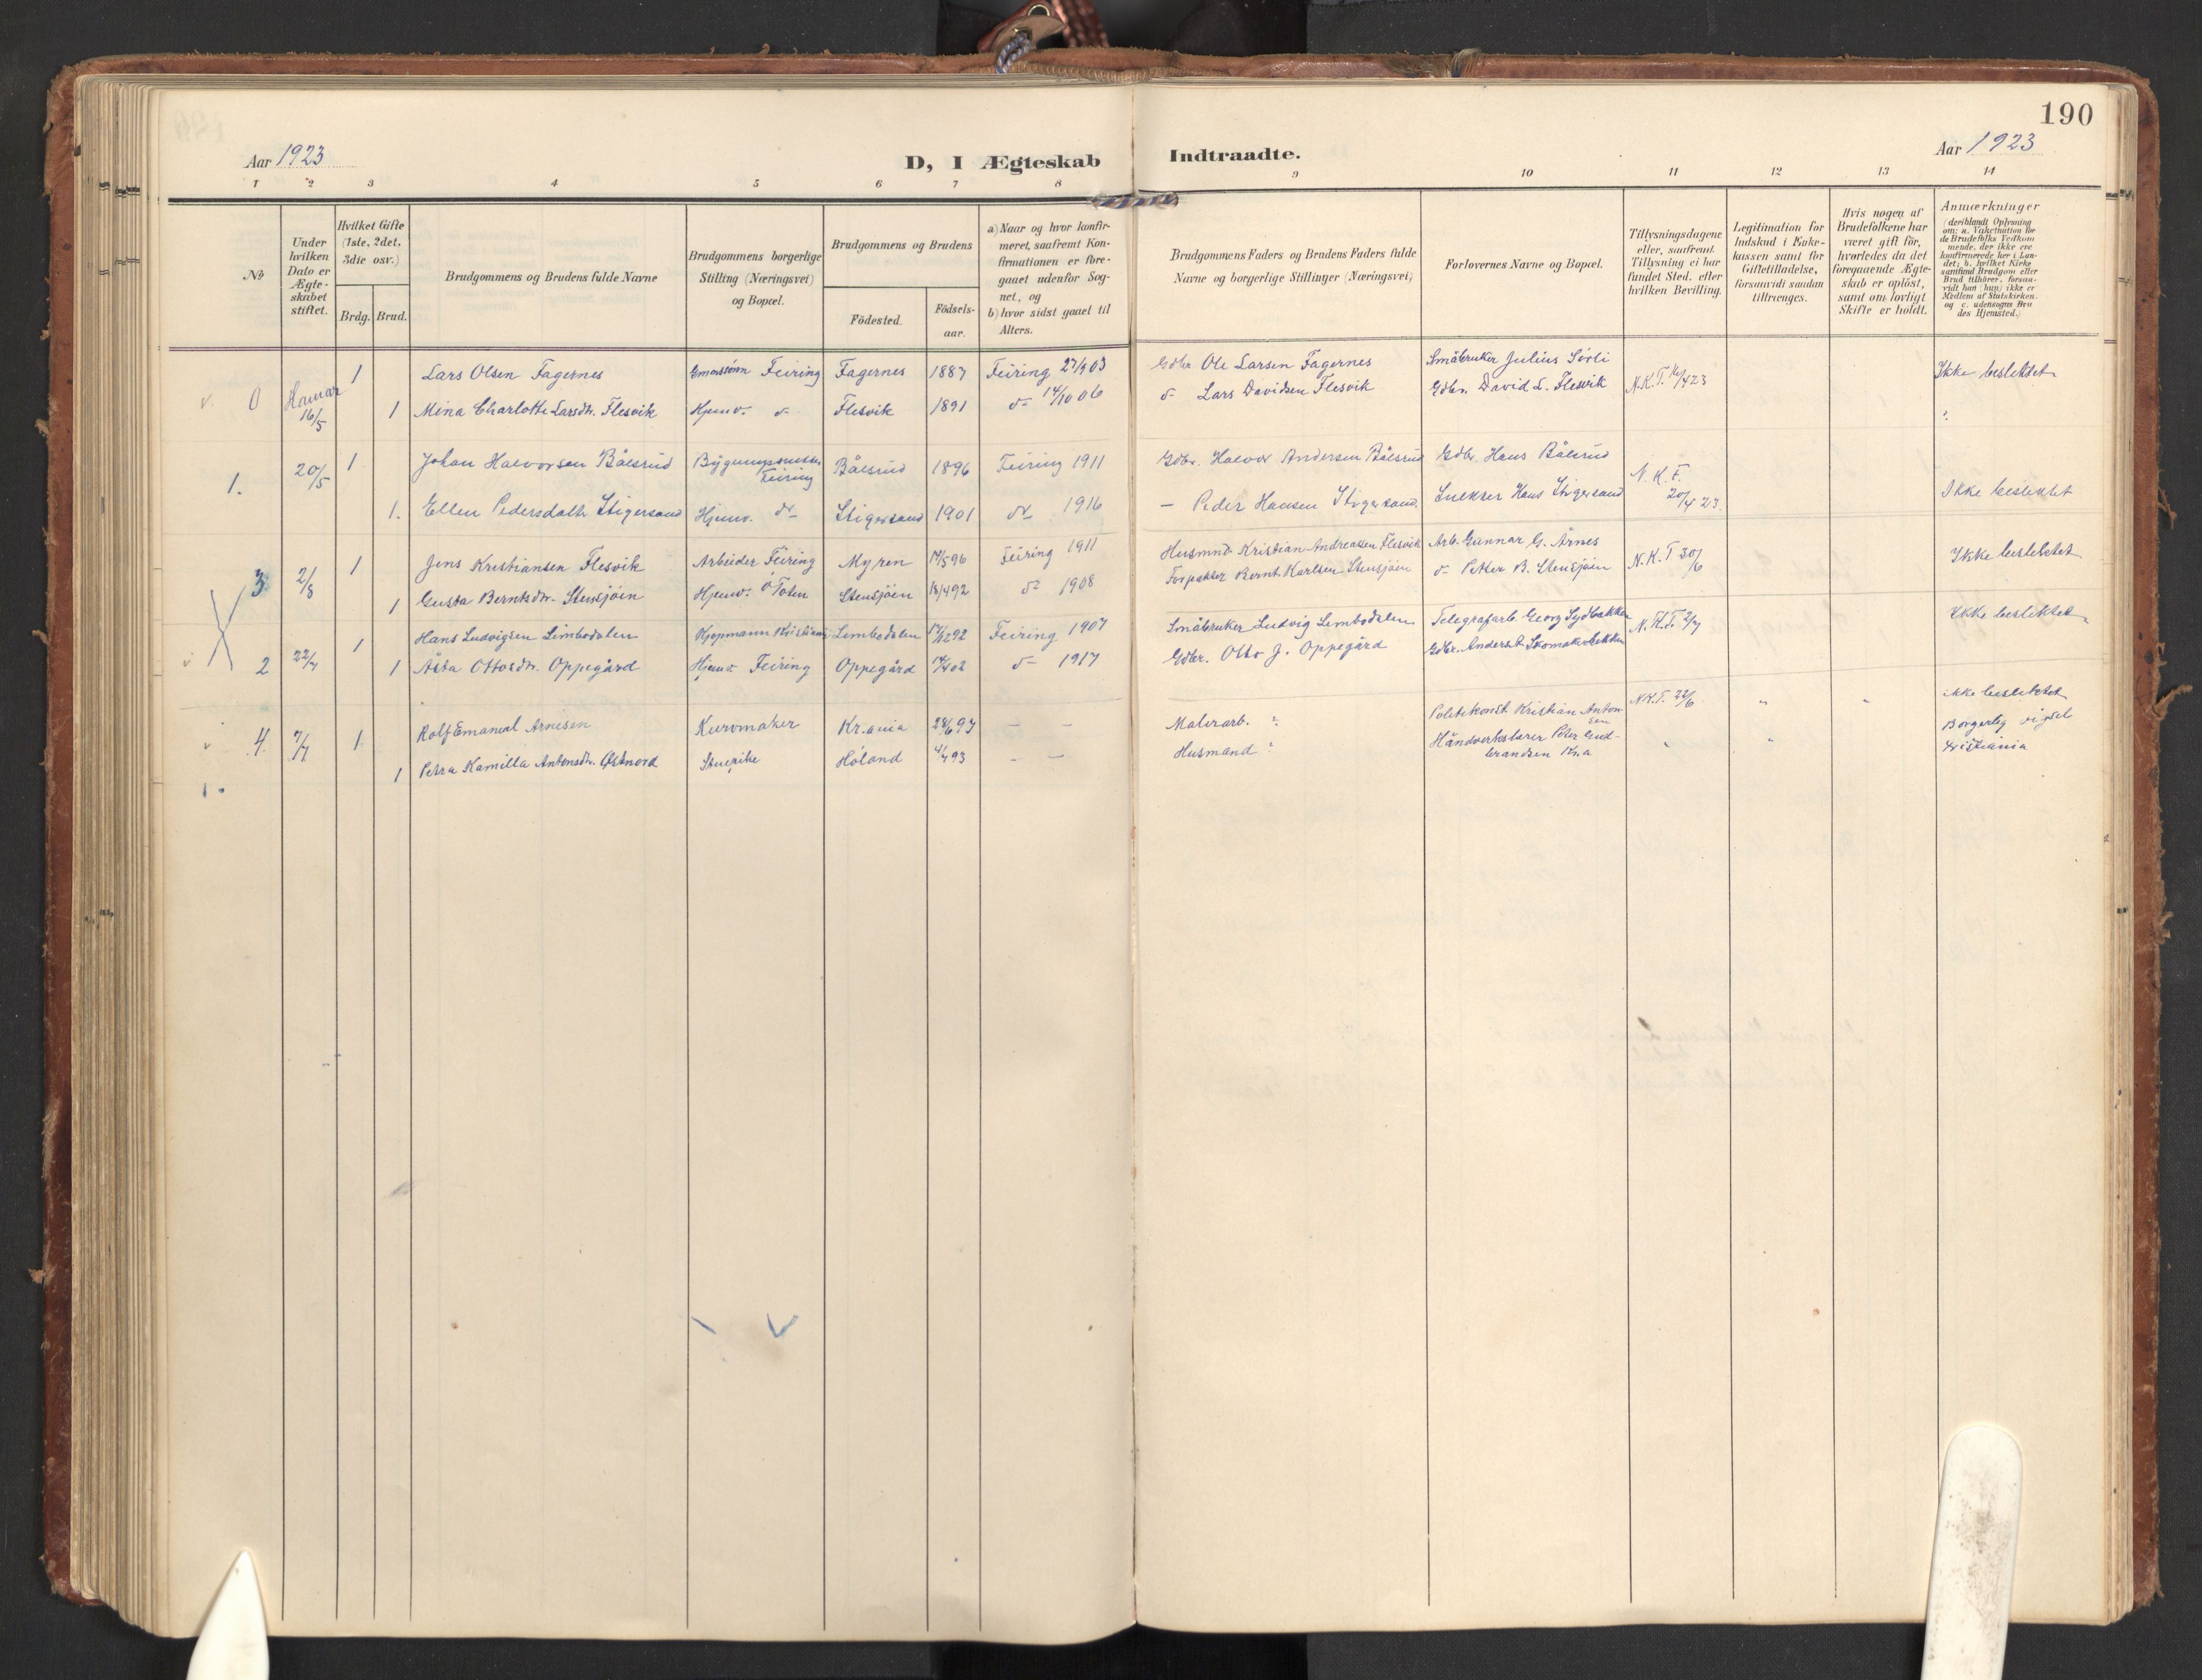 190
Aar 1923
D, I Ægteskab Indtraadte.
Aar 1923
1 2 3 4 5 6 7 8 9 10 11 12 13 14
No
Under hvilken Dato er Ægteskabet stiftet.
Hvilket Gifte (1ste, 2det, 3die osv.)
Brdg. Brud.
Brudgommens og Brudens fulde Navne
Brudgommens borgerlige Stilling (Næringsvei) og Bopæl.
Brudgommens og Brudens
Födested.
Födsels-aar.
a) Naar og hvor konfirmeret, saafremt Konfirmationen er foregaaet udenfor Sognet, og b) hvor sidst gaaet til Alters.
Brudgommens Faders og Brudens Faders fulde Navne og borgerlige Stillinger (Næringsvei)
Forlovernes Navne og Bopæl.
Tillysningsdagene eller, saafremt Tillysning ei har fundet Sted, efter hvilken Bevilling.
Legitimation for Indskud i Enkekassen samt for Giftetilladelse, forsaavidt saadan tiltrænges.
Hvis nogen af Brudefolkene har været gift før, hvorledes da det foregaaende Ægteskab er opløst, samt om lovligt Skifte er holdt.
Anmærkninger (deriblandt Oplysning om: a. Vaksination for de Brudefolks Vedkommende, der ikke ere konfirmerede her i Landet; b. hvilket Kirkesamfund Brudgom eller Brud tilhører, forsaavidt han (hun) ikke er Medlem af Statskirken, og c. udensogns Brudes Hjemsted.)
0 Hamar 16/5 1 Lars Olsen Fagernes Feiring Fagernes 1887 Feiring 27/9 03 Gdbr Ole Larsen Fagernes Småbruker Julius Sørli N.K.T. 16/4 23 Ikke beslektet
1 Mina Charlotte Larsdtr. Flesvik Hjemv. do Flesvik 1891 do 14/10 06 do Lars Davidsen Flesvik Gdbr. David L. Flesvik "
1. 20/5 1 Johan Halvorsen Bålsrud Bygningssnekker Feiring Bålsrud 1896 Feiring 1911 Gdbr. Halvor Andersen Bålsrud Gdbr. Hans Bålsrud N.K.T. 20/4 23
1. Ellen Pedersdatter Stigersand Hjemv. do Stigersand 1901 do 1916 — Peder Hansen Stigersand. Snekker Hans Stigersand Ikke beslektet
3 2/8 1 Jens Kristiansen Flesvik Arbeider Feiring Myren 17/5 96 Feiring 1911 Husmnd. Kristian Andreassen Flesvik Arb. Gunnar G. Årnes N.K.T 30/6 Ikke beslektet
1 Gusta Berntsdtr. Stensjöen Hjemv. Ö Toten Stensjöen 18/4 92 do 1908 Forpakter Bernt Karlsen Stensjöen do Petter B. Stensjöen
2 22/7 1 Hans Ludvigsen Limbodalen Kjøpmann Kristiania Limbodalen 17/12 92 Feiring 1907 Småbruker Ludvig Limbodalen Telegrafarb. Georg Sydbakken N.K.T. 2/7 Ikke beslektet
1 Åsta Ottosdtr. Oppegård Hjemv Feiring Oppegård 14/4 02 do 1917 Gdbr. Otto J. Oppegård Gdbr. Anders Skomakerbekken
4. 7/7 1 Rolf Emanuel Arnesen Kurvmaker Kr.ania 28/6 97 — — Malerarb. ? Politikonst. Kristian Antonsen N.K.T. 22/6 " " ikke beslektet
1 Petra Kamilla Antonsdtr. Østnord Stuepike Höland 4/4 93 — — Husmand ? Håndverkslærer Peter Gudbrandsen Kr.a " " Borgerlig vigsel Kristiania